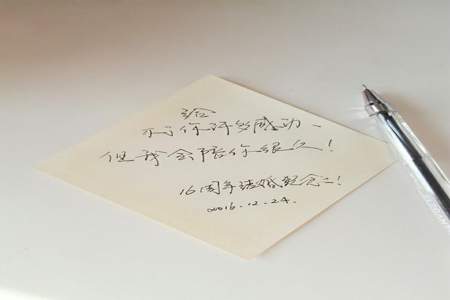 给
不了你许多感动、
但我会陪你很久!
16周年结婚纪念!
2016.12.24.